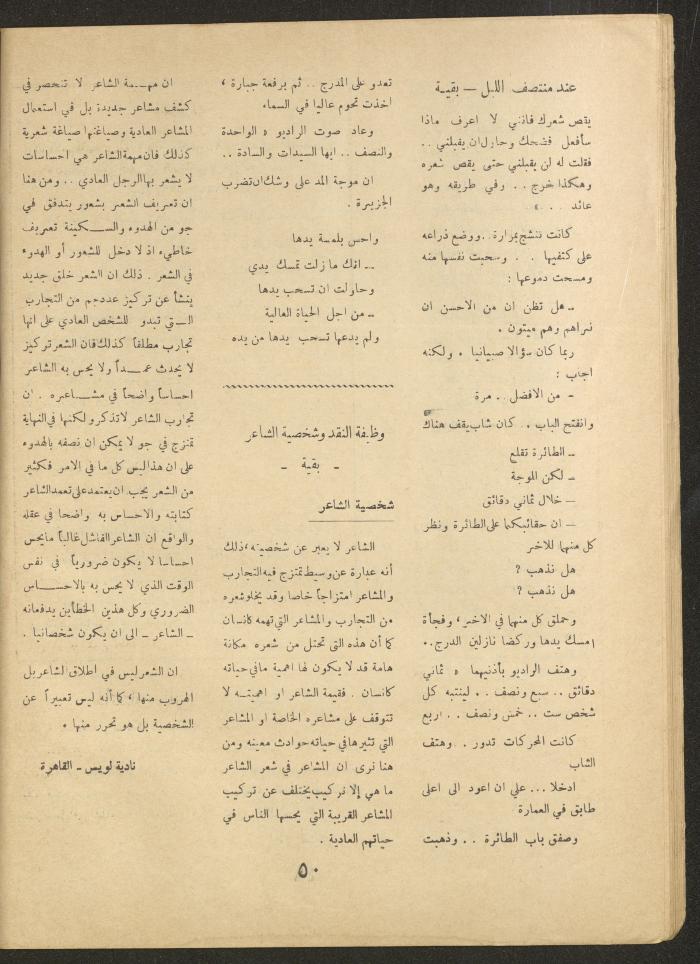 عند منتصف الليل — بقية
يقص شعرك فانني لا اعرف ماذا
سأفعل فضحك وحاول ان يقبلني ..
فقلت له لن يقبلني حتى يقص شعره
وهكذا خرج .. وفي طريقه وهو
عائد . . . »
كانت تنشج بمزارة .. ووضع ذراعه
على كتفيها . . وسحبت نفسها منه
ومسحت دموعها :
ـ هل تظن ان من الاحسن ان
نراهم وهم ميتون .
ربما كان سؤالا صبيانيا . ولكنه
اجاب :
- من الافضل .. مرة
وانفتح الباب .. كان شاب يقف هناك
ـ الطائرة تقلع
ـ لكن الموجة
— خلال ثماني دقائق
— ان حقائبكما على الطائرة ونظر
كل منهما للاخر
هل نذهب ?
هل نذهب ?
وحملق كل منهما في الاخر، وفجأة
امسك يدها وركضا نازلين الدرج ..
وهتف الراديو بأذنيهما « ثماني
دقائق .. سبع ونصف . . لينتبه كل
شخص ست .. خمس ونصف . . اربع
كانت المحركات تدور . . وهتف
الشاب
ادخلا ... علي ان اعود الى اعلى
طابق في العمارة
وصفق باب الطائرة . . وذهبت
تعدو على المدرج .. ثم برفعة جبارة ،
اخذت تحوم عاليا في السماء
وعاد صوت الراديو « الواحدة
والنصف .. ايها السيدات والسادة ..
ان موجة المد على وشك ان تضرب
الجزيرة .
واحس بلمسة يدها
ـ انك ما زلت تمسك يدي
وحاولت ان تسحب يدها
ـ من اجل الحياة الغالية
ولم يدعها تسحب يدها من يده
وظيفة النقد وشخصية الشاعر
- بقية -
شخصية الشاعر
الشاعر لا يعبر عن شخصيته ، ذلك
أنه عبارة عن وسيط تمتزج فيه التجارب
والمشاعر امتزاجاً خاصا وقد يخلو شعره
من التجارب والمشاعر التي تهمه كانسان
كما أن هذه التى تحتل من شعره مكانة
هامة قد لا يكون لها اهمية ما في حياته
كانسان . فقيمة الشاعر او اهميته لا
تتوقف على مشاعره الخاصة او المشاعر
التي تثيرها في حياته حوادث معينه ومن
هنا نرى ان المشاعر في شعر الشاعر
ما هي إلا تركيب يختلف عن تركيب
المشاعر القريبة التي يحسها الناس في
حياتهم العادية .
ان مهمة الشاعر لا تنحصر في
كشف مشاعر جديدة بل في استعمال
المشاعر العادية وصياغتها صياغة شعرية
كذلك فان مهمة الشاعر هي احساسات
لا يشعر بها الرجل العادي .. ومن هنا
ان تعريف الشعر بشعور يتدفق في
جو من الهدوء والسكينة تعريف
خاطيء اذ لا دخل للشعور أو الهدوء
في الشعر . ذلك ان الشعر خلق جديد
ينشأ عن تركيز عدد جم من التجارب
التي تبدو للشخص العادي على انها
تجارب مطلقاً كذلك فان الشعر تركيز
لا يحدث عمداً ولا يحس به الشاعر
احساساً واضحاً في مشاعره . ان
تجارب الشاعر لا تذكر ولكنها في النهاية
تمتزج في جو لا يمكن ان نصفه بالهدوء
على ان هذا ليس كل ما في الامر فكثير
من الشعر يجب ان يعتمد على تعمد الشاعر
كتابته والاحساس به واضحا في عقله
والواقع ان الشاعر الفاشل غالباً ما يحس
احساسا لا يكون ضرورياً في نفس
الوقت الذي لا يحس به بالاحساس
الضروري وكل هذين الخطأين يدفعانه
ـ الشاعر ـ الى ان يكون شخصانيا .
ان الشعر ليس في اطلاق الشاعر بل
الهروب منها ، كما أنه ليس تعبيراً عن
الشخصية بل هو تحرر منها .
نادية لويس ـ القاهرة
٥٠